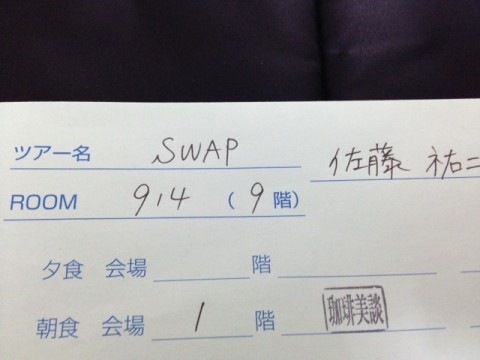 ツアー名 SWAP 佐藤 祐二
ROOM 914 ( 9 階)
夕食 会場 階
朝食 会場 1 階 珈琲美談